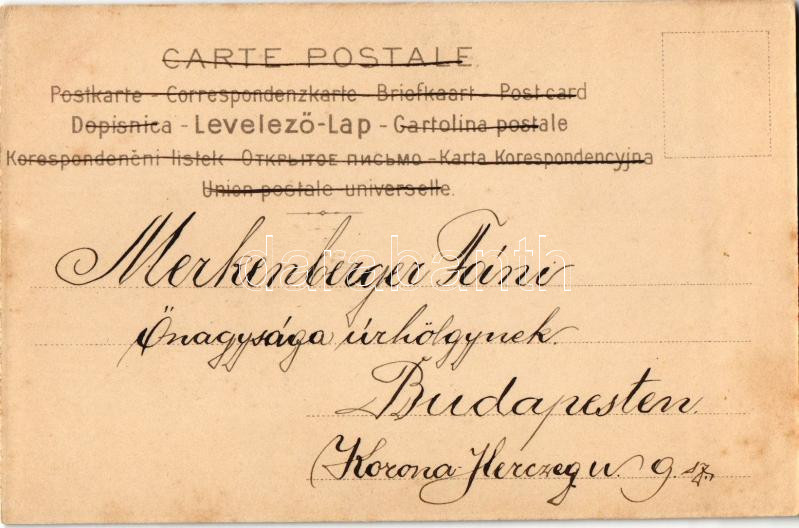 CARTE POSTALE
Postkarte - Correspondenzkarte - Briefkaart - Post card
Dopisnica - Levelező-Lap - Cartolina postale
Korespondenční listek - Открытое письмо - Karta Korespondencyjna
Union postale universelle.
Merkenberger Fáni
darabanth
Őnagysága úrhölgynek.
Budapesten.
Korona Herczeg u. 9. sz.